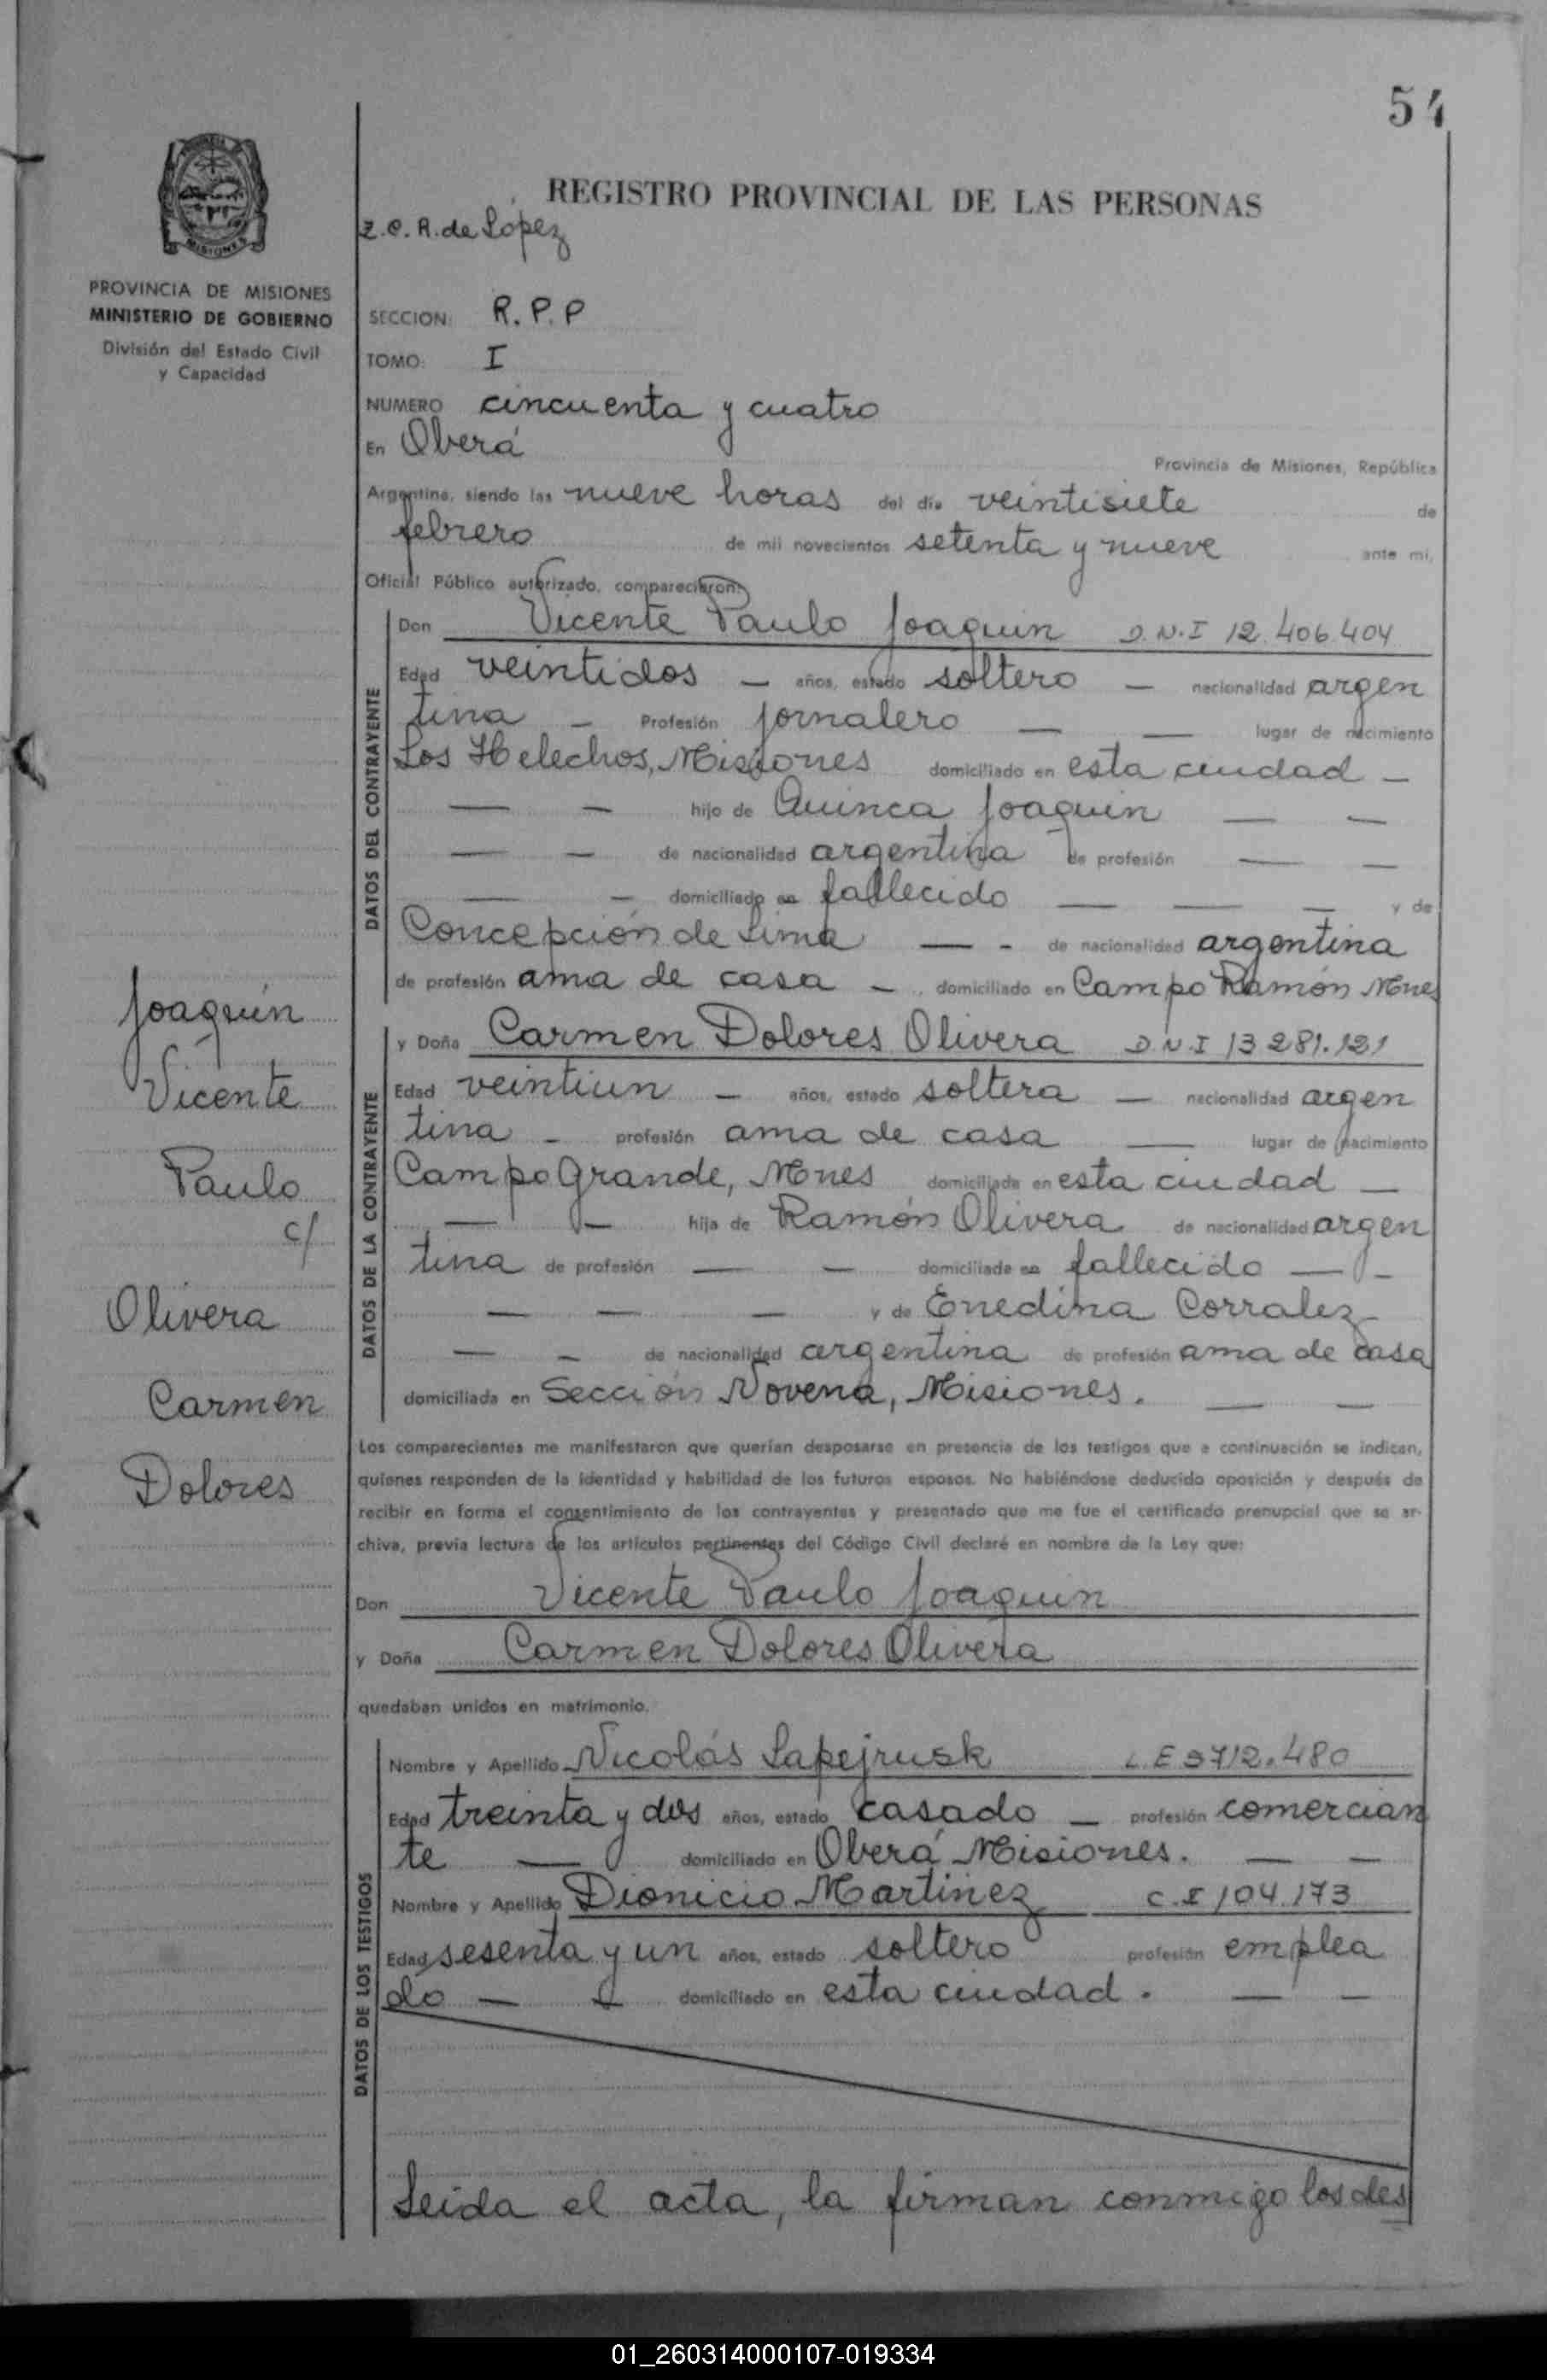 54
REGISTRO PROVINCIAL DE LAS PERSONAS
Z.C.R. de López
MISIONES
PROVINCIA DE MISIONES
MINISTERIO DE GOBIERNO
División del Estado Civil
y Capacidad
SECCION: R.P.P
TOMO: I
NUMERO cincuenta y cuatro
En Oberá Provincia de Misiones, República
Argentina, siendo las nueve horas del día veintisiete de
febrero de mil novecientos setenta y nueve ante mi,
Oficial Público autorizado, comparecieron:
DATOS DEL CONTRAYENTE
Don Vicente Paulo Joaquin D.N.I 12.406.404
Edad veintidos — años, estado soltero — nacionalidad argen
tina — Profesión jornalero — — lugar de nacimiento
Los Helechos, Misiones domiciliado en esta ciudad —
— — hijo de Quinca Joaquin — —
— — de nacionalidad argentina de profesión — —
— — domiciliado en fallecido — — — y de
Concepción de Lima — - de nacionalidad argentina
de profesión ama de casa — domiciliado en Campo Ramón Mnes
Joaquín
Vicente
Paulo
c/
Olivera
Carmen
Dolores
DATOS DE LA CONTRAYENTE
y Doña Carmen Dolores Olivera D.N.I 13 281.121
Edad veintiun — años, estado soltera — nacionalidad argen
tina - profesión ama de casa — lugar de nacimiento
Campo Grande, Mnes domiciliada en esta ciudad —
— — hija de Ramón Olivera de nacionalidad argen
tina de profesión — — domiciliado en fallecido — -
— — — y de Enedina Corralez
— - de nacionalidad argentina de profesión ama de casa
domiciliada en Sección Novena, Misiones. — —
Los comparecientes me manifestaron que querían desposarse en presencia de los testigos que a continuación se indican,
quienes responden de la identidad y habilidad de los futuros esposos. No habiéndose deducido oposición y después de
recibir en forma el consentimiento de los contrayentes y presentado que me fue el certificado prenupcial que se ar-
chiva, previa lectura de los artículos pertinentes del Código Civil declaré en nombre de la Ley que:
Don Vicente Paulo Joaquin
y Doña Carmen Dolores Olivera
quedaban unidos en matrimonio.
DATOS DE LOS TESTIGOS
Nombre y Apellido Nicolás Sapejrusk L.E 3712.480
Edad treinta y dos años, estado casado — profesión comercian
te — domiciliado en Oberá Misiones. — —
Nombre y Apellido Dionicio Martinez C.I 104.173
Edad sesenta y un años, estado soltero profesión emplea
do — — domiciliado en esta ciudad. — —
Leida el acta, la firman conmigo los des
01_260314000107-019334